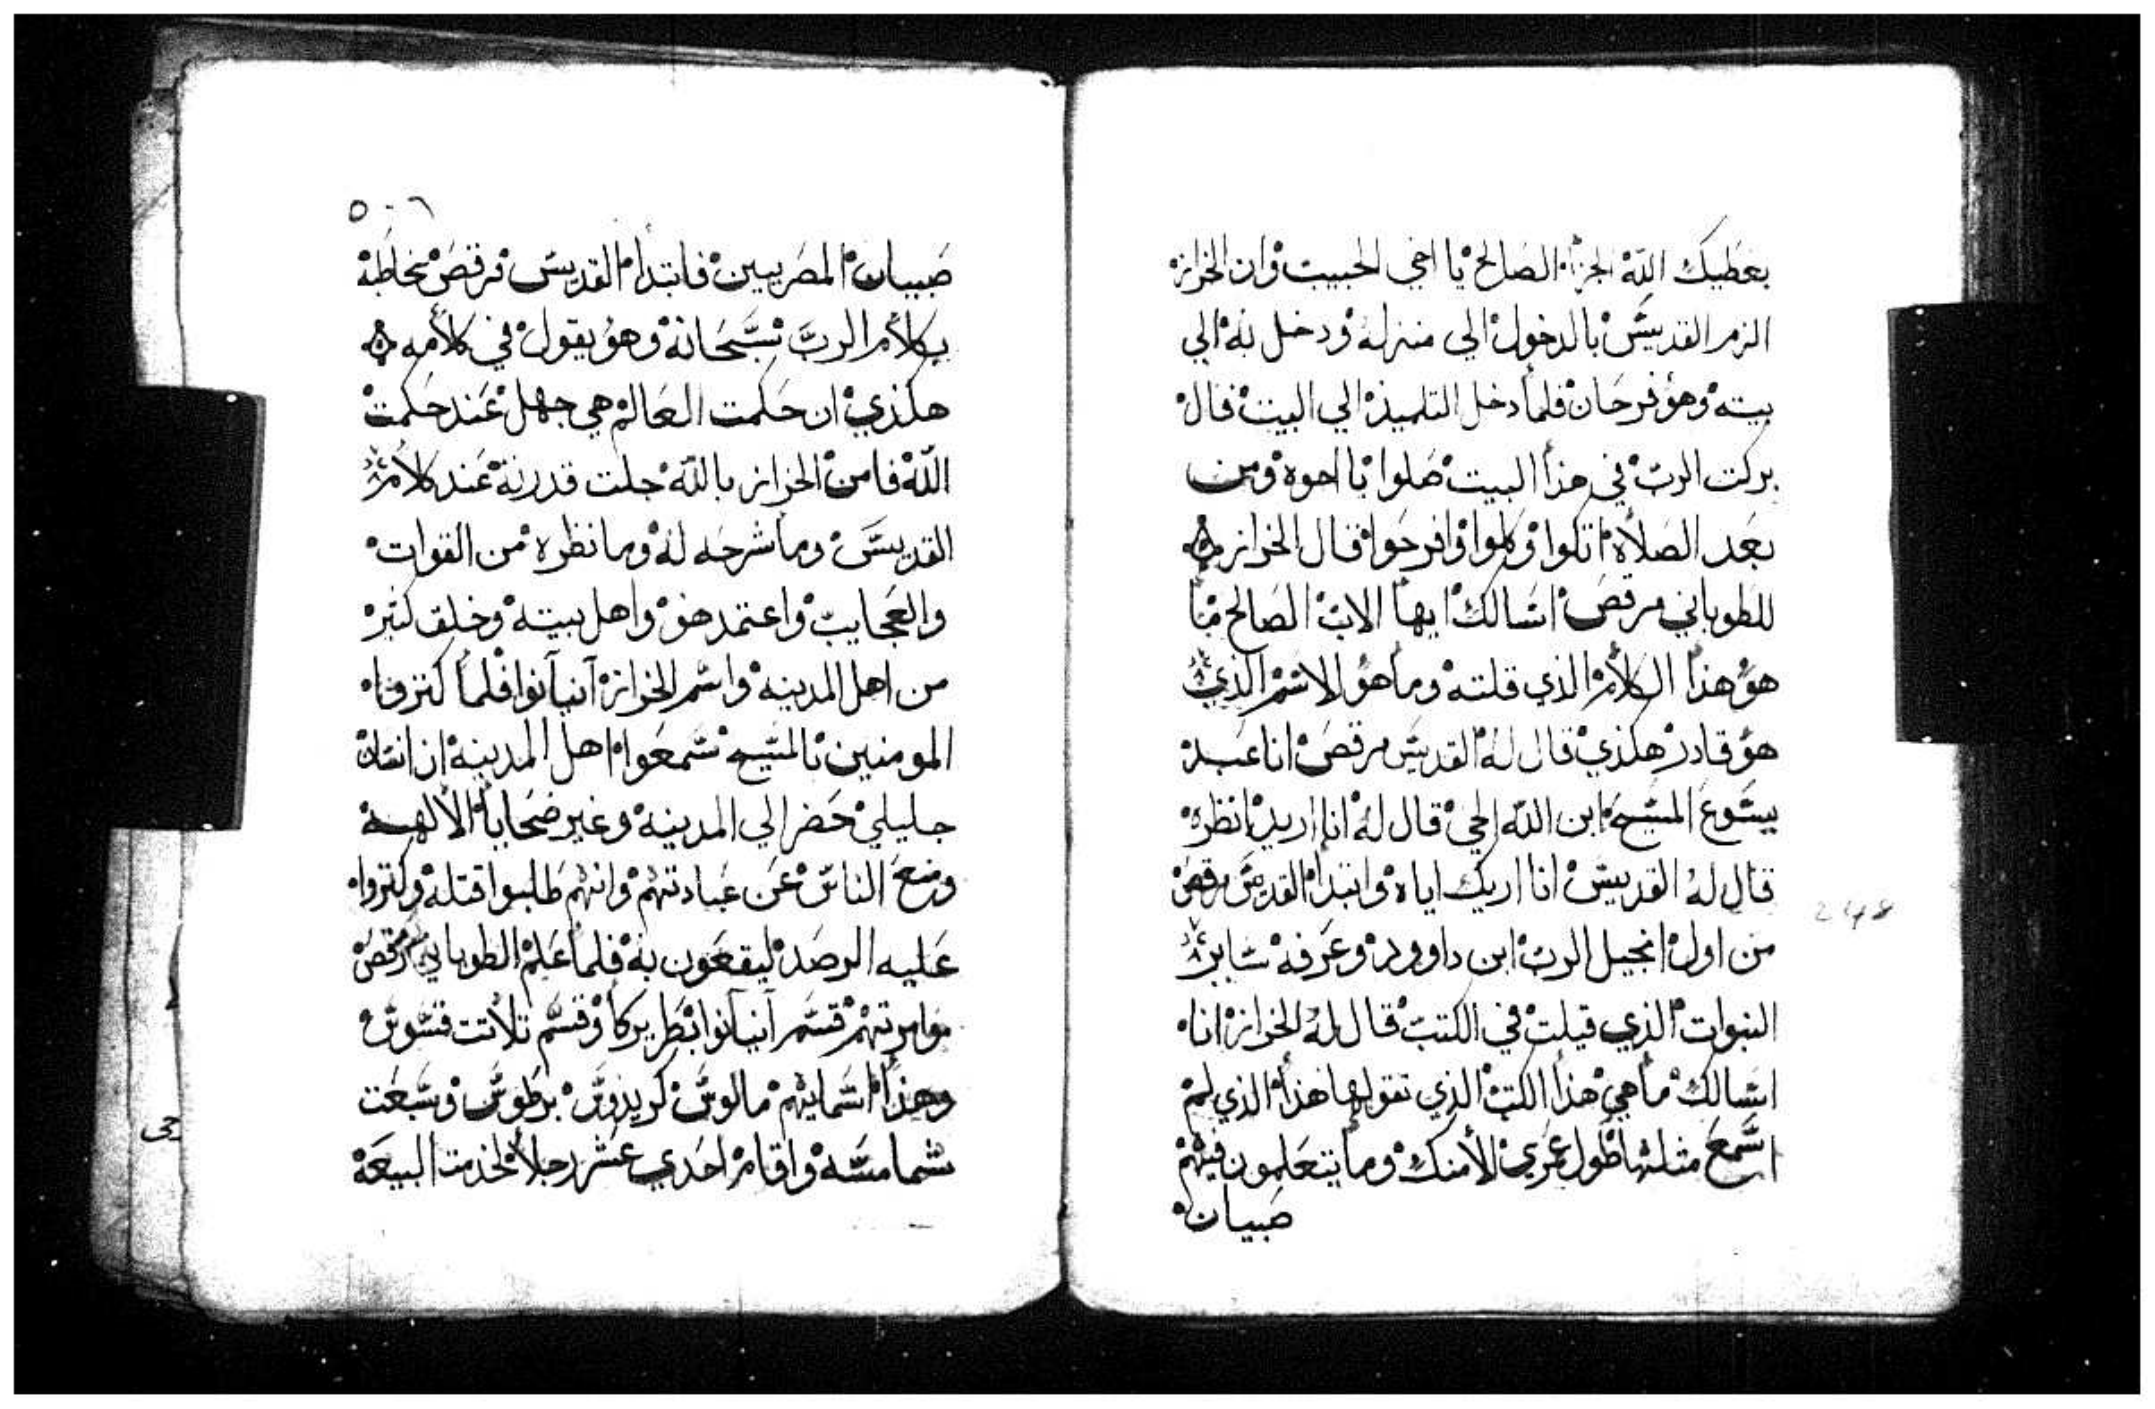 يعطيك الله الجزأ الصالح يا اخي الحبيب وان الخراز
الزم القديس بالدخول الي منزله ودخل به الي
بيته وهو فرحان فلما دخل التلميذ الي البيت قال
بركت الرب في هذا البيت صلوا يا اخوه ومن
بعد الصلاه اتكوا وكلوا وافرحوا فقال الخراز
للطوباني مرقص اسالك ايها الاب الصالح ما
هو هذا الكلام الذي قلته وما هو الاسم الذي
هو قادر هكذي قال له القديس مرقص انا عبد
يسوع المسيح ابن الله الحي قال له انا اريد انظره
قال له القديس انا اريك اياه وابتدا القديس مرقص
من اول انجيل الرب ابن داوود وعرفه ساير
النبوات الذي قيلت في الكتب قال له الخراز انا
اسالك ما هي هذا الكتب الذي تقولها هذا الذي لم
اسمع مثلها طول عمري الا منك وما يتعلمون فيهم
صبيان
248
٥٠٦
صبيان المصريين فابتدا القديس مرقص يخاطبه
بكلام الرب سبحانه وهو يقول في كلامه
هكذي ان حكمت العالم هي جهل عند حكمت
الله فامن الخراز بالله جلت قدرته عند كلام
القديس وما شرحه له وما نظره من القوات
والعجايب واعتمد هو واهل بيته وخلق كثير
من اهل المدينه واسم الخراز آنيآنوا فلما كتروا
المومنين بالمسيح سمعوا اهل المدينه ان انسان
جليلي حضر الي المدينه وغير ضحايا الالهة
ومنع الناس عن عبادتهم وانهم طالبوا قتله وكتروا
عليه الرصد ليقعون به فلما علم الطوباني مرقص
موامرتهم قسم آنيآنوا بطريركا وقسم تلاتت قسوس
وهذا اسمايهم مالوس كريدوس برطوس وسبعت
شمامسه واقام احدي عشر رجلا لخدمت البيعة